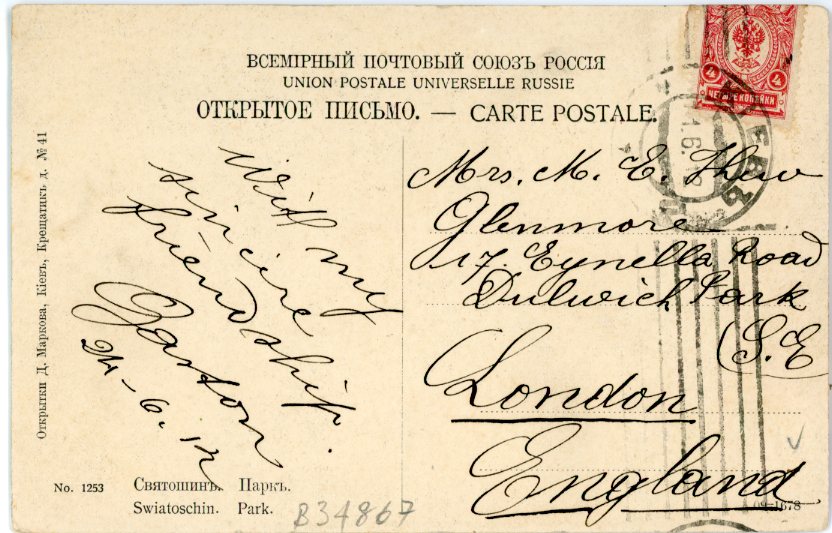 ВСЕМІРНЫЙ ПОЧТОВЫЙ СОЮЗЪ РОССІЯ
UNION POSTALE UNIVERSELLE RUSSIE
ОТКРЫТОЕ ПИСЬМО. — CARTE POSTALE.
4 4
ЧЕТЫРЕ КОПѢЙКИ
Открытки Д. Маркова, Кіевъ, Крещатикъ д. № 41
With my
sincere
friendship.
Gaston
24-6.12
Mrs. M. E. Thew
Glenmore
17. Eynella Road
Dulwich Park
(S.E
London
England
No. 1253 Святошинъ. Паркъ.
Swiatoschin. Park.
B34867